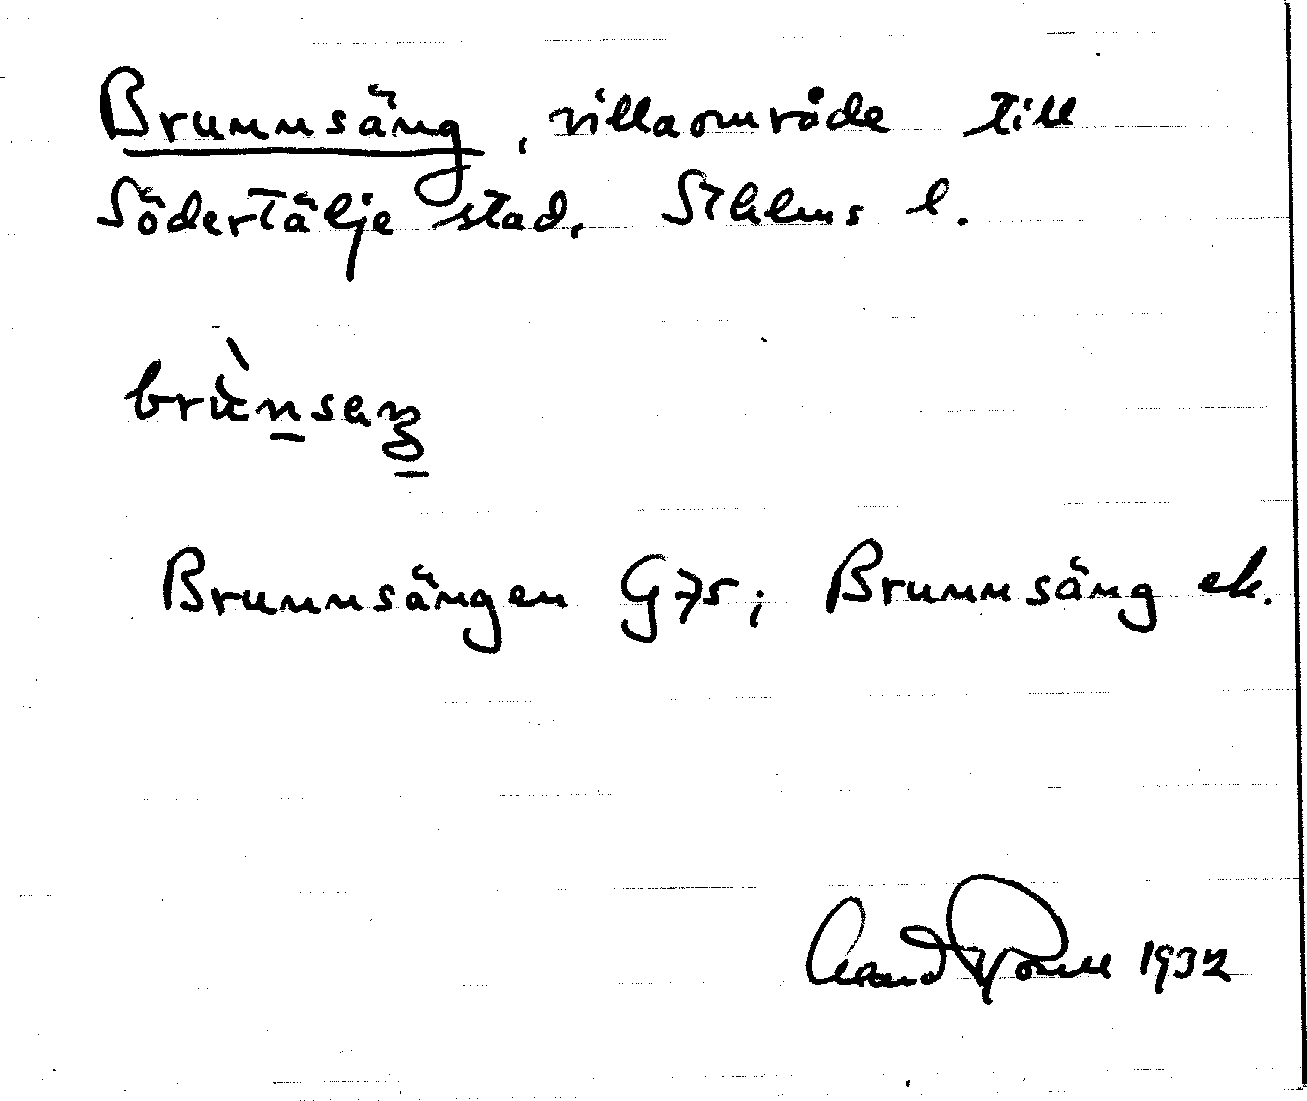 Brunnsäng, villaområde till
Södertälje stad, Sthlms l.
brùnseŋ
Brunnsängen G75; Brunnsäng ek.
1932